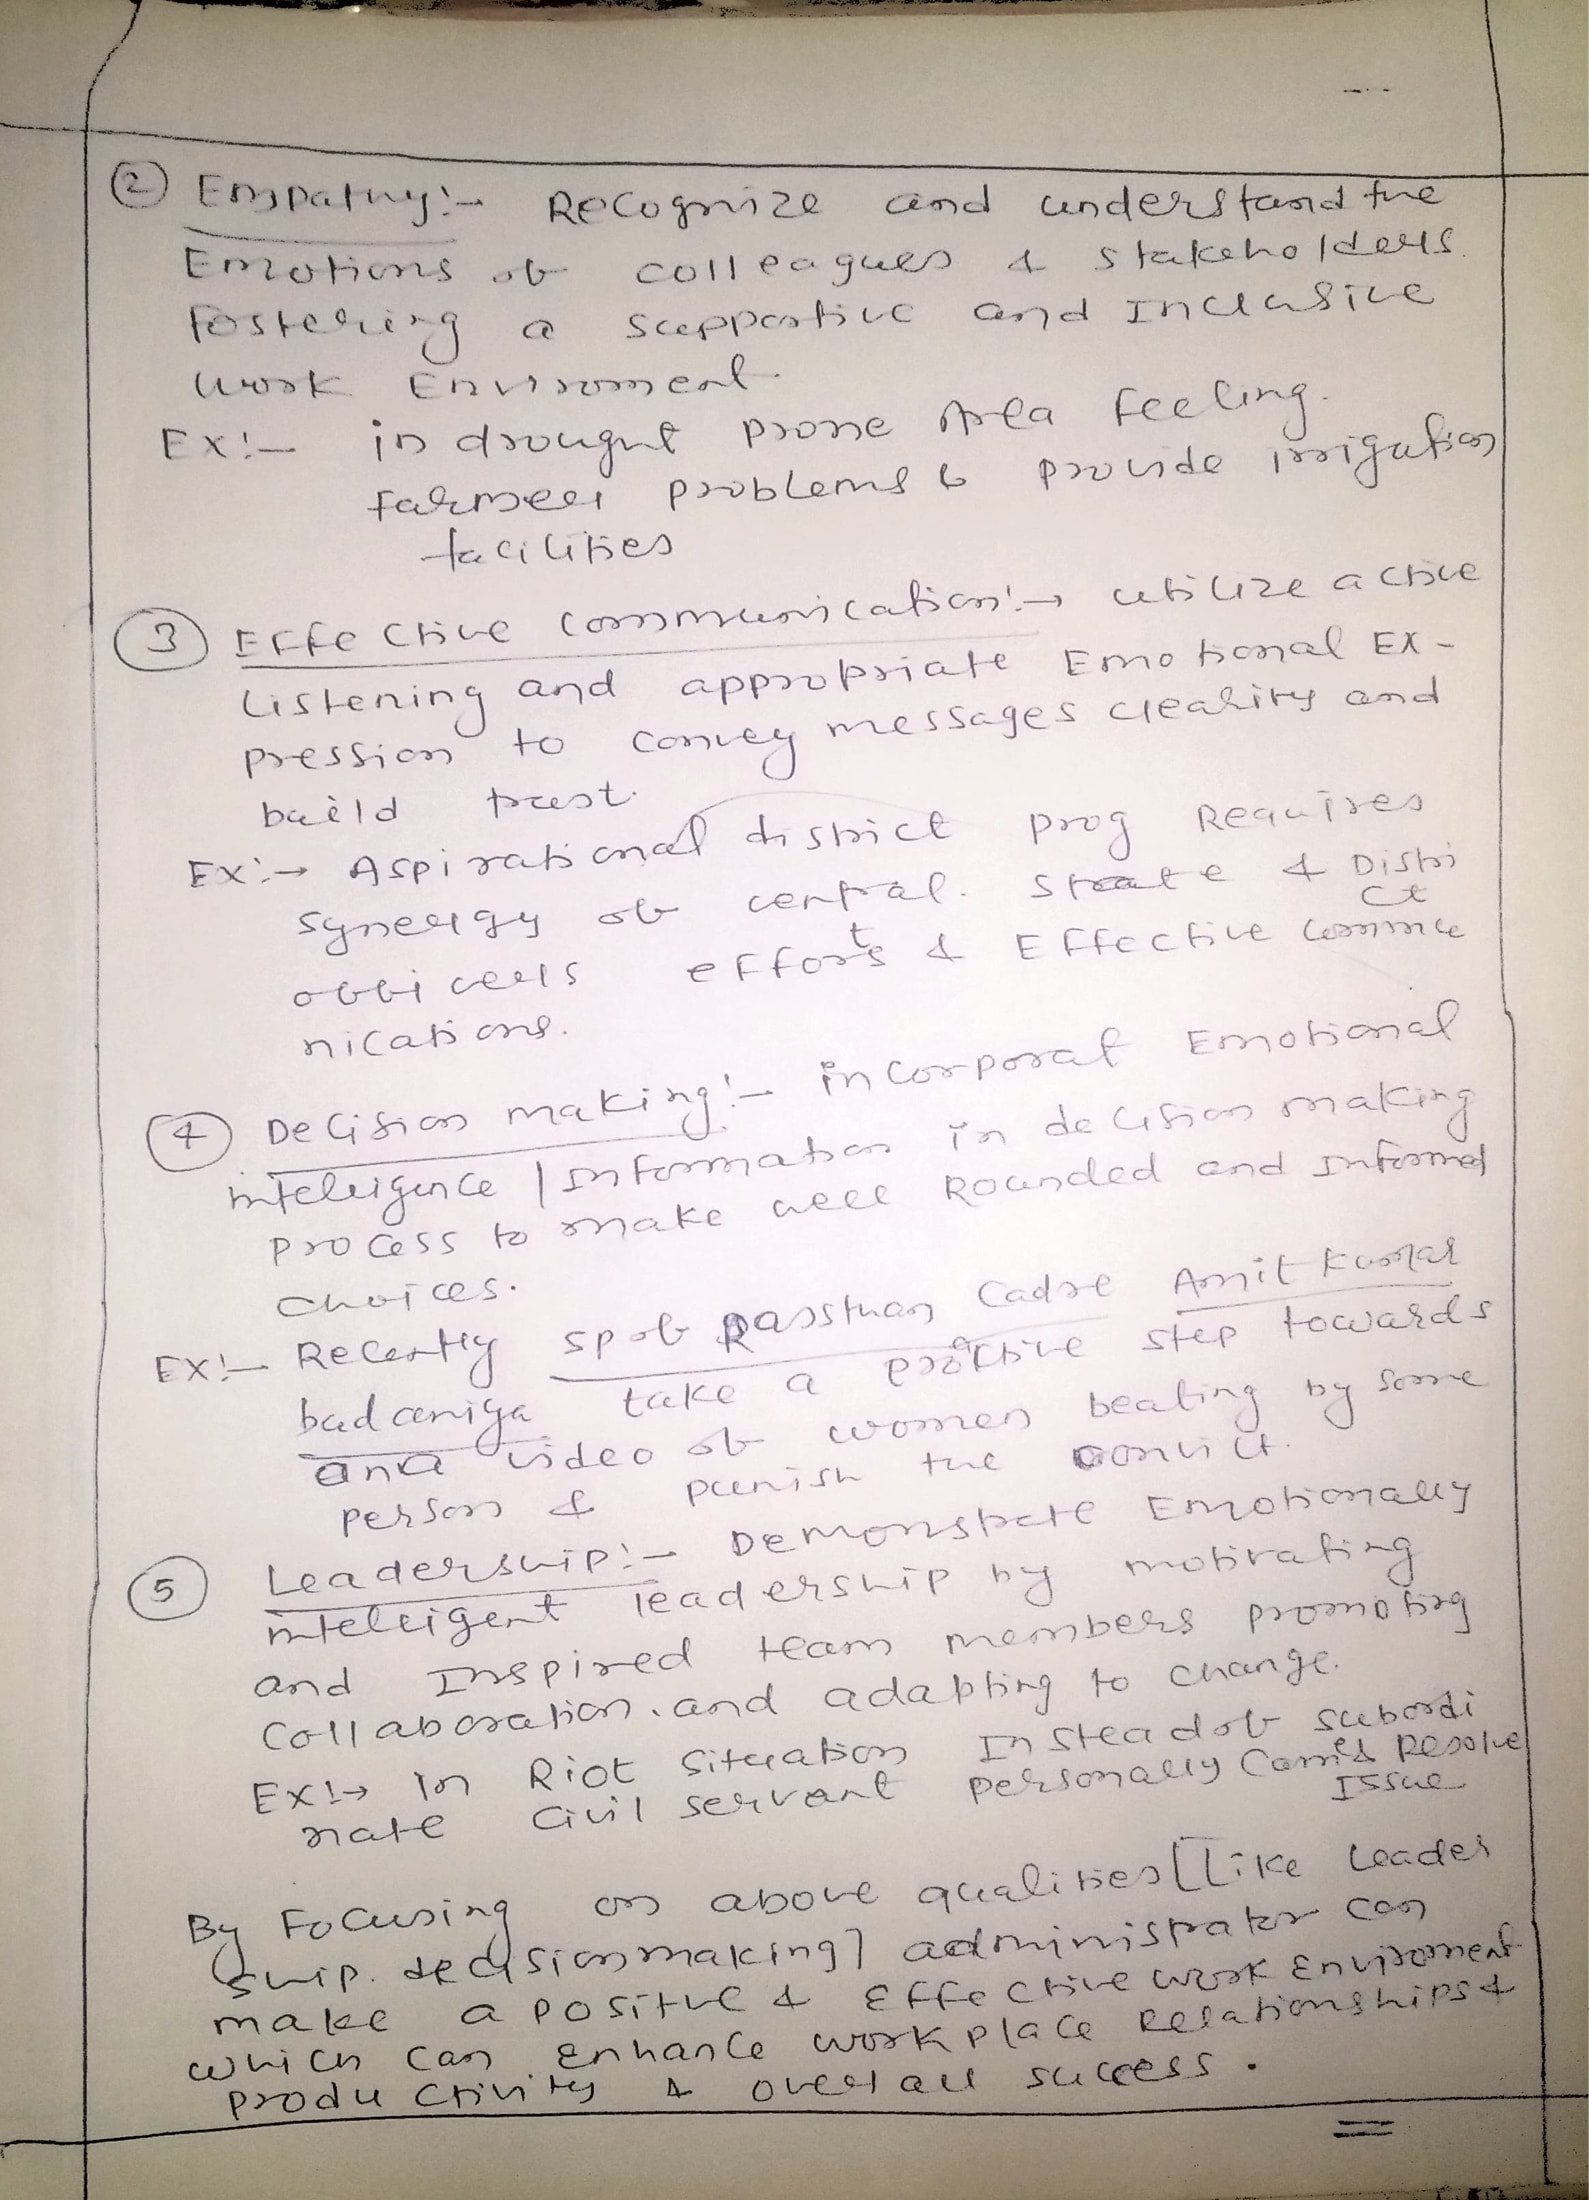 ② Empathy:- Recognize and understand the
Emotions of colleagues & stakeholders
fostering a supportive and Inclusive
work Enviroment
EX:- in drought prone Area feeling
farmers problems & provide irrigation
facilities
③ Effective communication:→ utilize active
listening and appropriate Emotional Ex-
pression to convey messages clearity and
build trust.
EX:→ Aspirational district prog Requires
synergy of central. State & Distri
ct
officers efforts & Effective commu
nications.
④ Decision making:- incorporat Emotional
intelligence / Information in decision making
process to make well Rounded and Informed
choices.
EX:- Recently sp of Rajsthan Cadre Amit Kumar
budaniya take a proactive step towards
video of women beating by some
person & punish the convict.
⑤ Leadership:- Demonstrate Emotionally
intelligent leadership by motivating
and Inspired team members promoting
collaboration. and adapting to change.
EX:→ In Riot situation Instead of subordi
nate civil servant personally Comes & Resolve
Issue
By Focusing on above qualities [Like Leader
ship. decision making] administrator can
make a positive & Effective work Enviroment
which can Enhance workplace Relationships &
productivity & overall success.